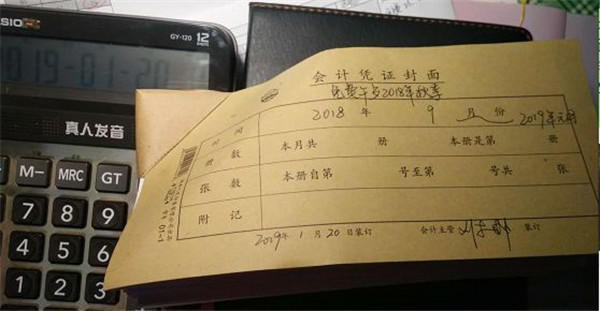 GY-120
12
2019-01-20
真人发音
M-
MRC
GT
7
8
9
4
5
6
1
2
3
会计凭证封面
免费午餐2018年秋季
时间
2018 年 9 月份
册数
本月共 册 本册是第 册
张数
本册自第 号至第 号共 张
附记
2019年 1 月 20 日装订
会计主管
装订
01-1